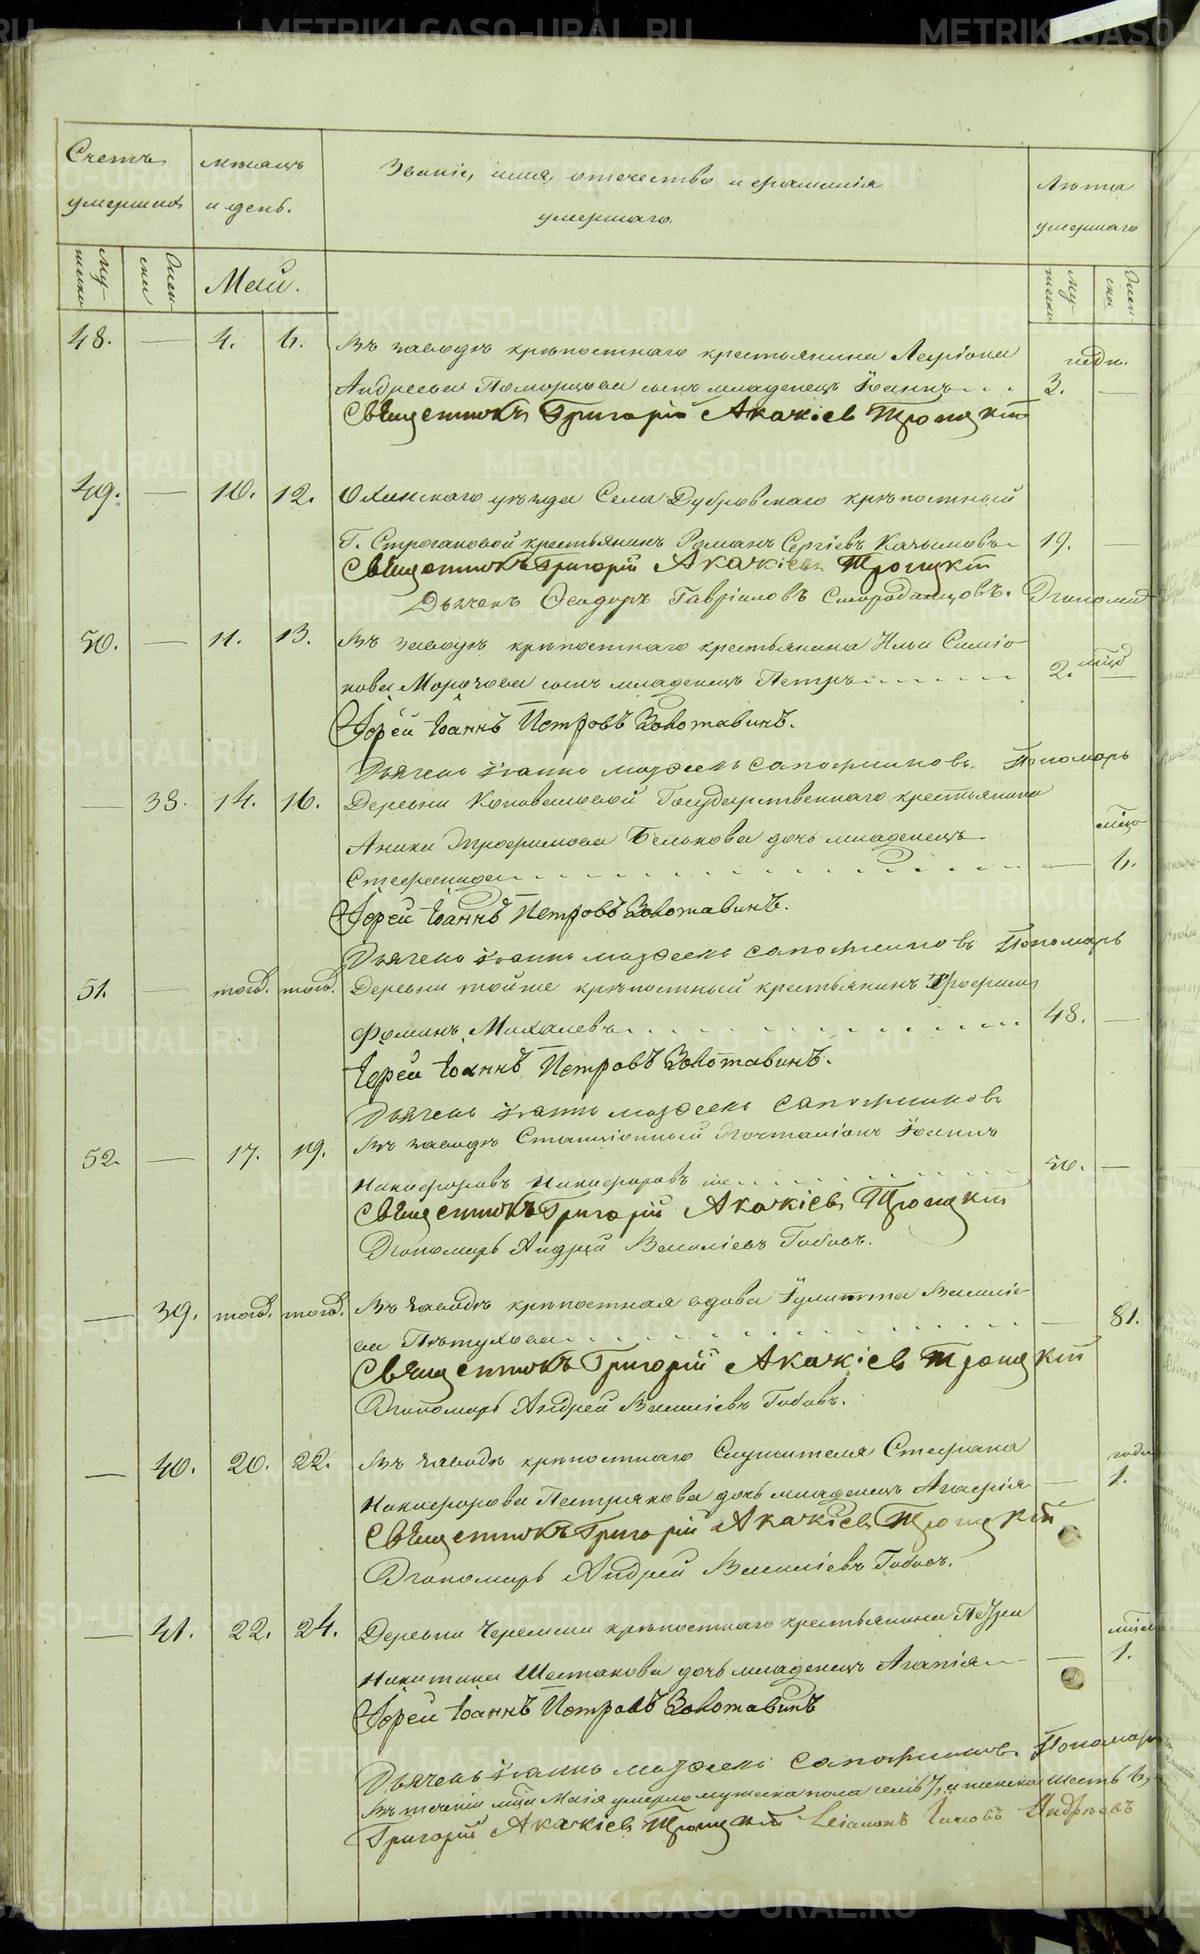 Счетъ умершихъ
мѣсяцъ и день.
Званіе, имя, отечество и фамилія умершаго.
Лѣта умершаго
Му-жеска
Жен-ска
Май.
Му-жеска
Жен-ска
48. — 4. 6. Въ заводѣ крѣпостнаго крестьянина Ларіона недѣ.
Андреева Поморцова сынъ младенецъ Іоаннъ 3. —
Священникъ Григорій Акакіевъ Троицкій
49. — 10. 12. Оханскаго уѣзда Села Дубровскаго крѣпостный
Г. Строгановой крестьянинъ Романъ Сергіевъ Качымовъ 19. —
Священникъ Григорій Акакіевъ Троицкій
Дьячекъ Ѳеодоръ Гавріиловъ Смородинцовъ.
50. — 11. 13. Въ заводѣ крѣпостнаго крестьянина Ильи Симіо-
нова Морозова сынъ младенецъ Петръ 2. мѣц
Іерей Іоаннъ Петровъ Золотавинъ.
Дьячекъ Іоаннъ Сапожниковъ. Пономарь
— 38. 14. 16. Деревни Государственнаго крестьянина
Аники Трофимова Белькова дочь младенецъ мѣц
Стефанида — 6.
Іерей Іоаннъ Петровъ Золотавинъ.
Дьячекъ Іоаннъ Сапожниковъ Пономарь
51. — тогож. тогож. Деревни тойже крѣпостный крестьянинъ Трофимъ
Фоминъ Михалевъ 48. —
Іерей Іоаннъ Петровъ Золотавинъ.
Дьячекъ Іоаннъ Сапожниковъ
52. — 17. 19. Въ заводѣ Станціонный Почталіонъ Іоаннъ
Никифоровъ Никифоровъ же 50. —
Священникъ Григорій Акакіевъ Троицкій
Пономарь Андрей Василіевъ Бабинъ.
— 39. тогож. тогож. Въ заводѣ крѣпостная вдова Іулитта Василіе-
ва Пѣтухова — 81.
Священникъ Григорій Акакіевъ Троицкій
Пономарь Андрей Василіевъ
— 40. 20. 22. Въ заводѣ крѣпостнаго Служителя Стефана года
Никифорова Петрякова дочь младенецъ Агафія — 1.
Священникъ Григорій Акакіевъ Троицкій
Пономарь Андрей Василіевъ
— 41. 22. 24. Деревни Черемши крѣпостнаго крестьянина Петра мѣся
Никитина Шестакова дочь младенецъ Агапія — 1.
Іерей Іоаннъ Петровъ Золотавинъ
Дьячекъ Іоаннъ Сапожниковъ. Пономарь
Въ теченіи мѣц Маія умерло мужеска пола и женска шесть 6,
Григорій Акакіевъ Троицкій
METRIKI.GASO-URAL.RU